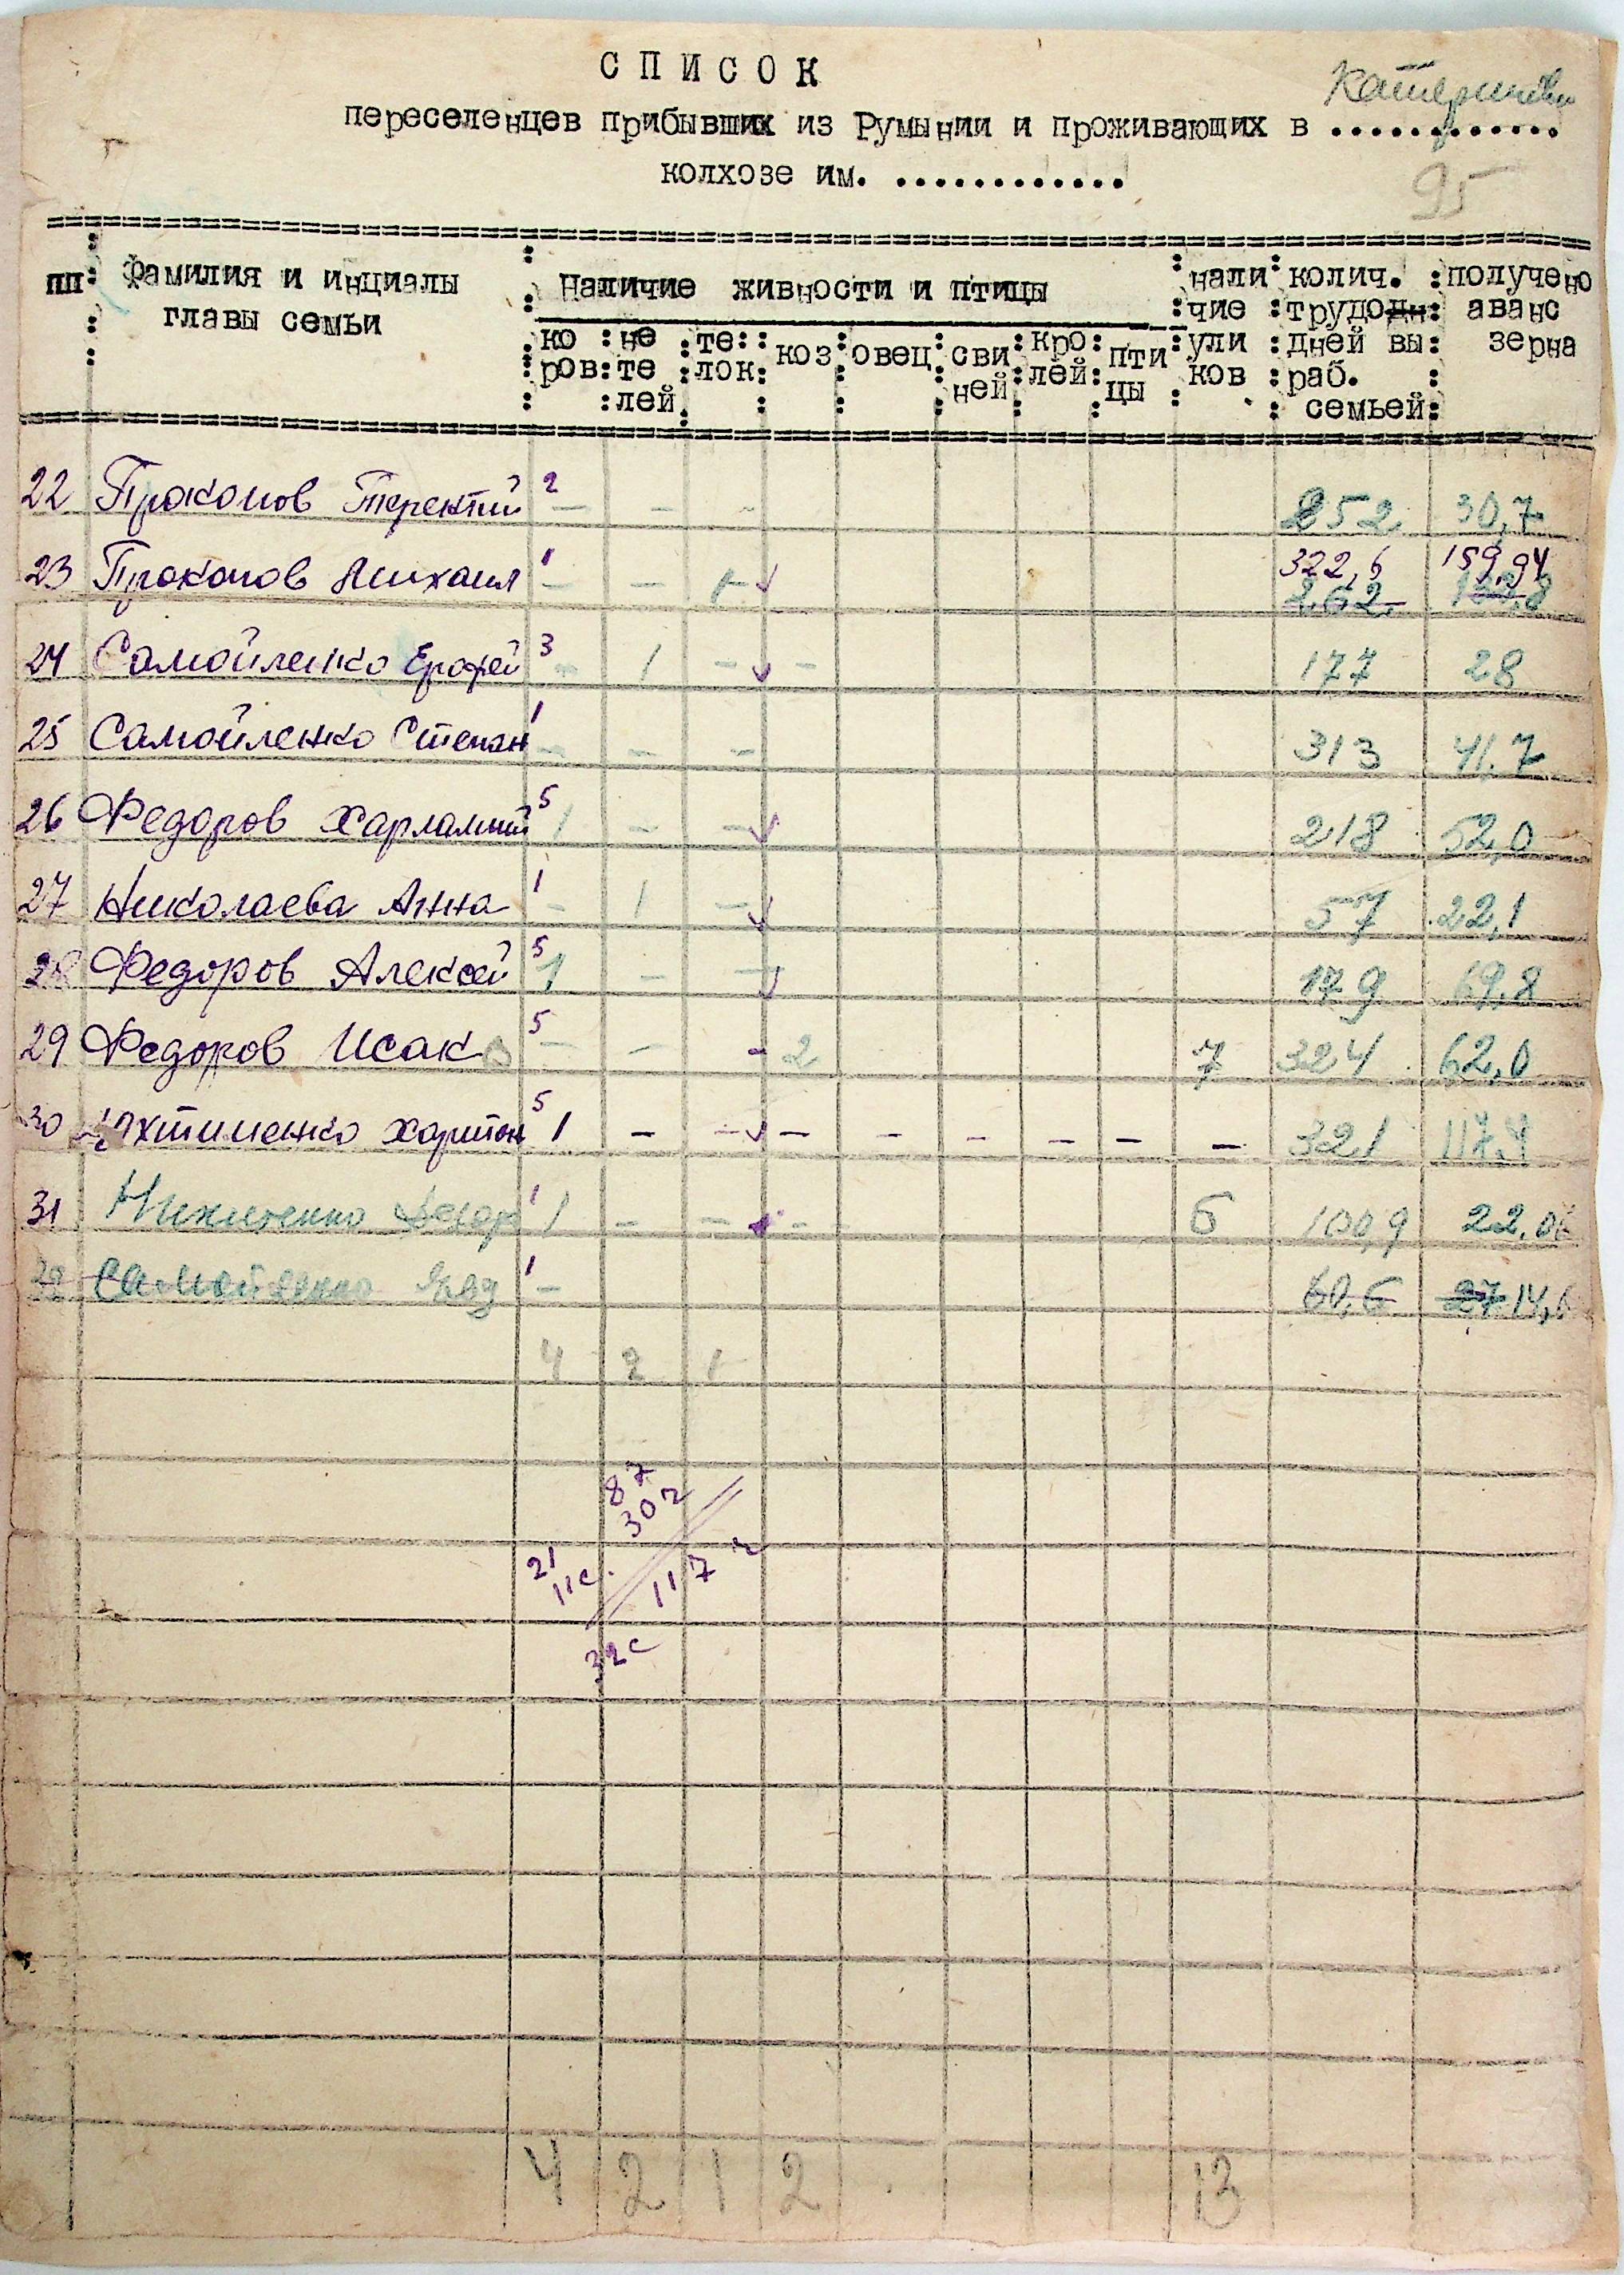 СПИСОК
Катериновки
переселенцев прибывших из Румынии и проживающих в ............
колхозе им. ............
95
пп Фамилия и инциалы главы семьи Наличие живности и птицы нали чие ули ков колич. трудодн дней вы раб. семьей получено аванс зерна
ко ров не те лей те лок коз овец сви ней кро лей пти цы
22 Прокопов Терентий 2 — — - 252 30,7
23 Прокопов Михаил 1 — — 1 ✓ 322,6 159,94
262
24 Самойленко Ерофей 3 - 1 - ✓ - 177 28
25 Самойленко Степан 1 - - - 313 41.7
26 Федоров Харлампий 5 1 - - ✓ 218 52,0
27 Николаева Анна 1 - 1 - ✓ 57 22,1
28 Федоров Алексей 5 1 - - ✓ 179 69,8
29 Федоров Исак 5 - - - 2 7 324 62,0
30 Ахтименко Харитон 5 1 - - ✓ - - - - - - 321 117.4
31 Никитенко 1 1 - - - 6 100,9 22,06
32 Самойленко 1 - 60,6 27 14,6
4 2 1
87
30 2
21
11с.
117 2
32с
4 2 1 2 13